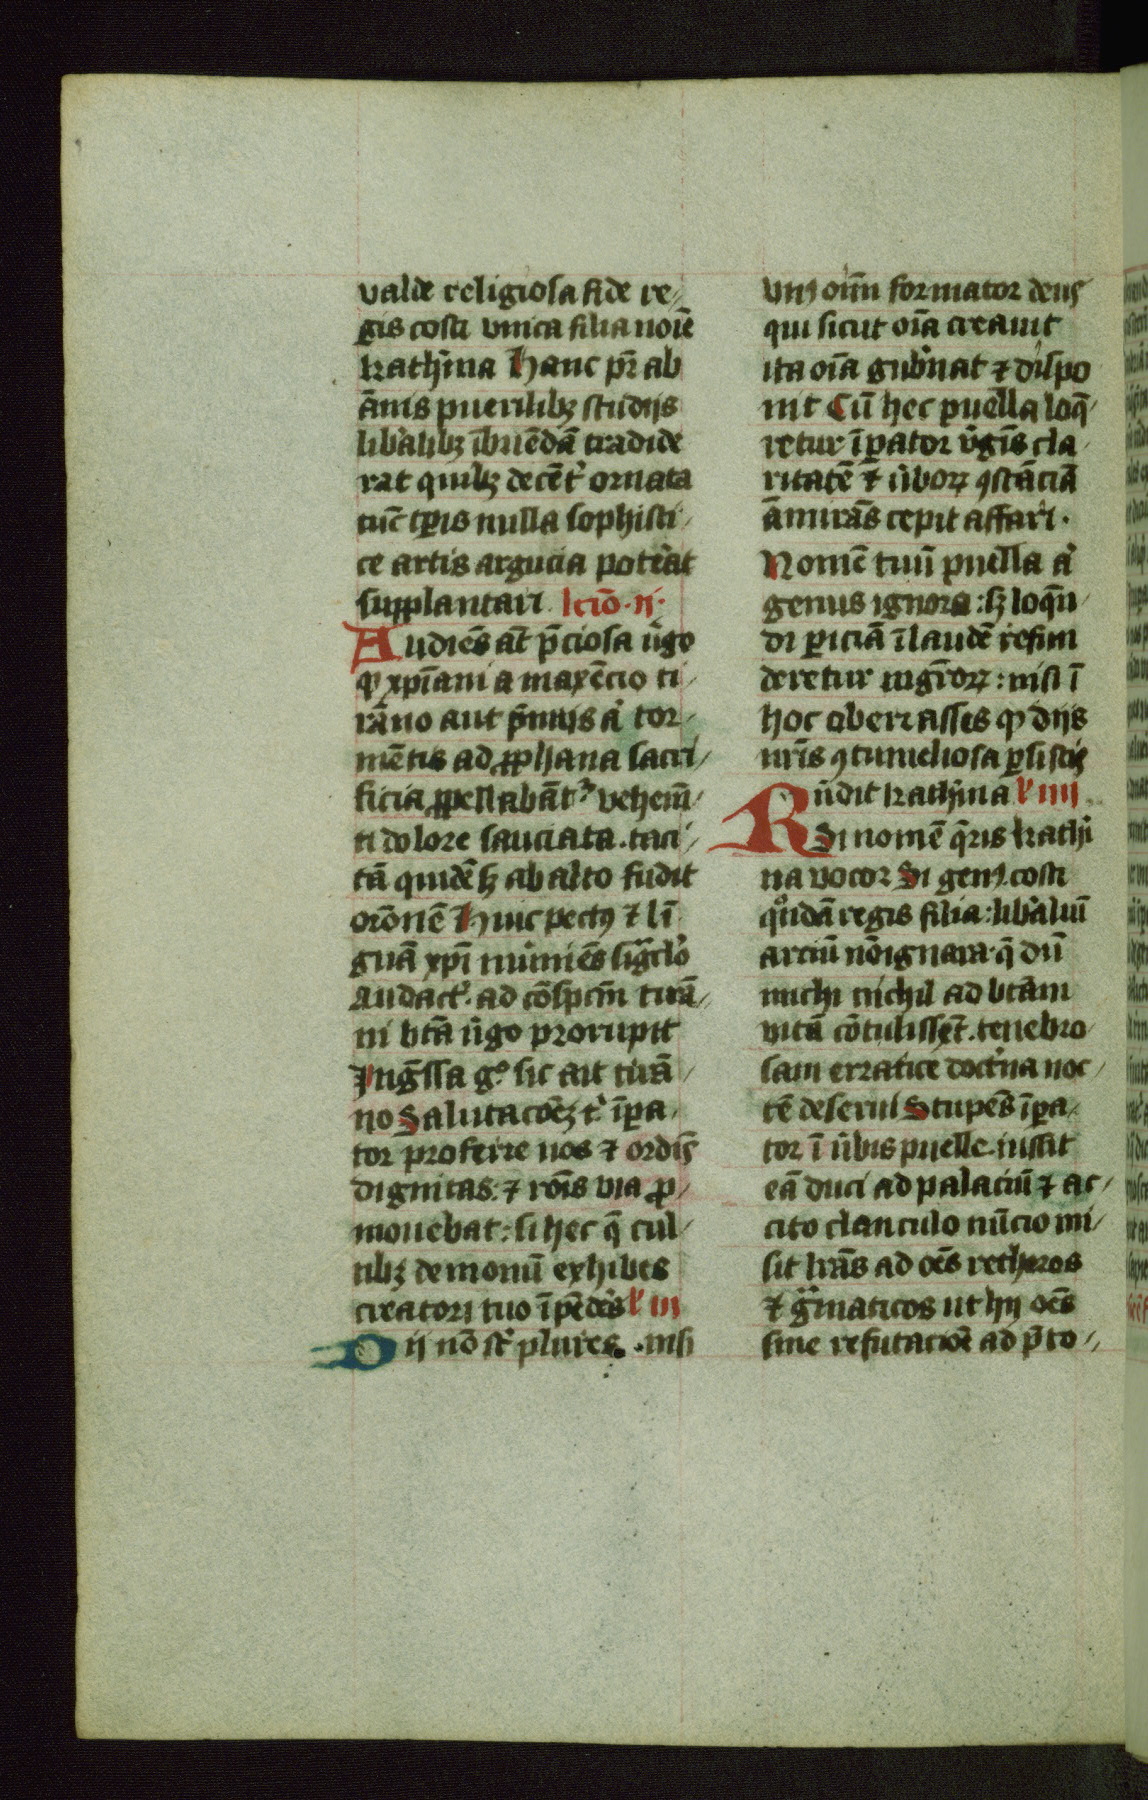 valde religiosa fide re⸗
gis costi vnica filia noīe
kath̓ina Hanc pr̄ ab
ānis puerilibꝫ studijs
lib̓alibꝫ ībuēdā tradide
rat quibꝫ decēt̓ ornata
tūc tꝑis nulla sophisti⸗
ce artis argucia pot̓at
supplantari lcīo · ij ·
Audiēs at̄ p̄ciosa v̓go
ꝙ xpīani a maxēcio ti⸗
rāno aut p̄mijs a̓ tor⸗
mētis ad ꝓphana sacri⸗
ficia ꝓpellabāt᷑ vehem̄⸗
ti dolore sauciata . taci⸗
tā quidē sꝫ ab alto fudit
orōnē Huic pectꝯ ⁊ lī
guā xpī mūniēs signac̓lo
Audact̓ . ad cōspc̄m tirā⸗
ni btā v̓go prorupit
Ingressa gͦ sic ait tirā⸗
no Salutacōeꝫ t̓ īpa⸗
tor proferre nos ⁊ ordīs
dignitas : ⁊ rōis via ꝓ⸗
mouebat : si hec q̄ cul⸗
tibꝫ demonū exhibes
creatori tuo īpēd̓es l̓ iij
Dij nō st̓ plures . nisi
vnꝯ oīm formator deus
qui sicut oīa creauit
ita oīa gub̓nat ⁊ dispo
nit Cū hec puella loq̄⸗
retur īpator v̓gīs cla⸗
ritatē ⁊ v̓boꝝ ꝯstācīā
āmirās cepit affari .
Nomē tuū puella a̓
genus ignora : sꝫ loq̄n
di ꝑiciā ī laudē refun
deretur ingēoꝝ : nisi ī
hoc aberrasses ꝙ dijs
nr̄is ꝯtumeliosa ꝑsistis
Rn̄dit kath̓ina l̓ iiij
Si nomē q̄ris kath̓i
na vocor Si genꝯ . costi
quōdā regis filia : lib̓aliū
arciū nō ignara . q̄ dū
michi nichil ad btām
vitā cōtulissēt . tenebro
sam erratice doct̓ne noc⸗
tē deserui Stupēs īpa⸗
tor ī v̓bis puelle . iussit
eā duci ad palaciū ⁊ ac⸗
cito clanculo nūcio mi⸗
sit lr̄as ad oēs rethoros
⁊ gͣmaticos ut hij oēs
sine refutaciōe ad p̄to⸗